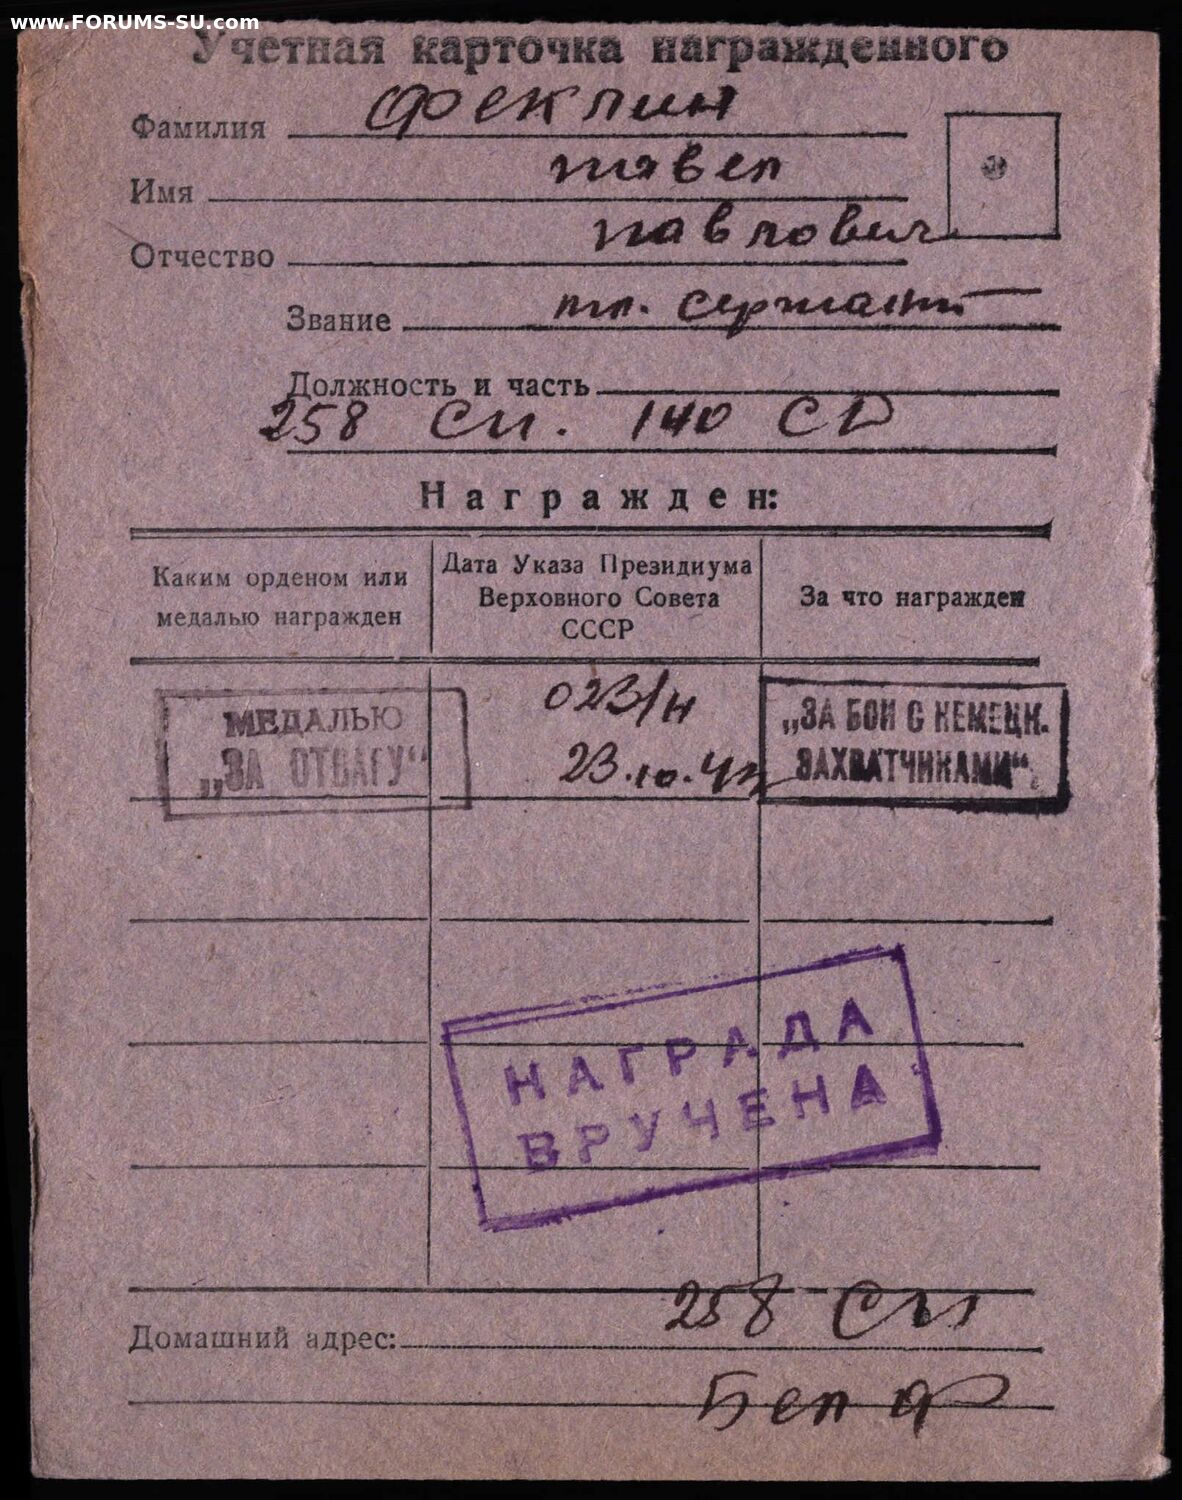 www.FORUMS-SU.com
Учетная карточка награжденного
Фамилия Феклин
Имя Павел
Отчество Павлович
Звание мл. сержант
Должность и часть
258 сп. 140 СД
Награжден:
Каким орденом или медалью награжден
Дата Указа Президиума Верховного Совета СССР
За что награжден
МЕДАЛЬЮ „ЗА ОТВАГУ“
023/н
23.10.43
„ЗА БОИ С НЕМЕЦК. ЗАХВАТЧИКАМИ“.
НАГРАДА
ВРУЧЕНА
Домашний адрес: 258 сп
Бел Ф